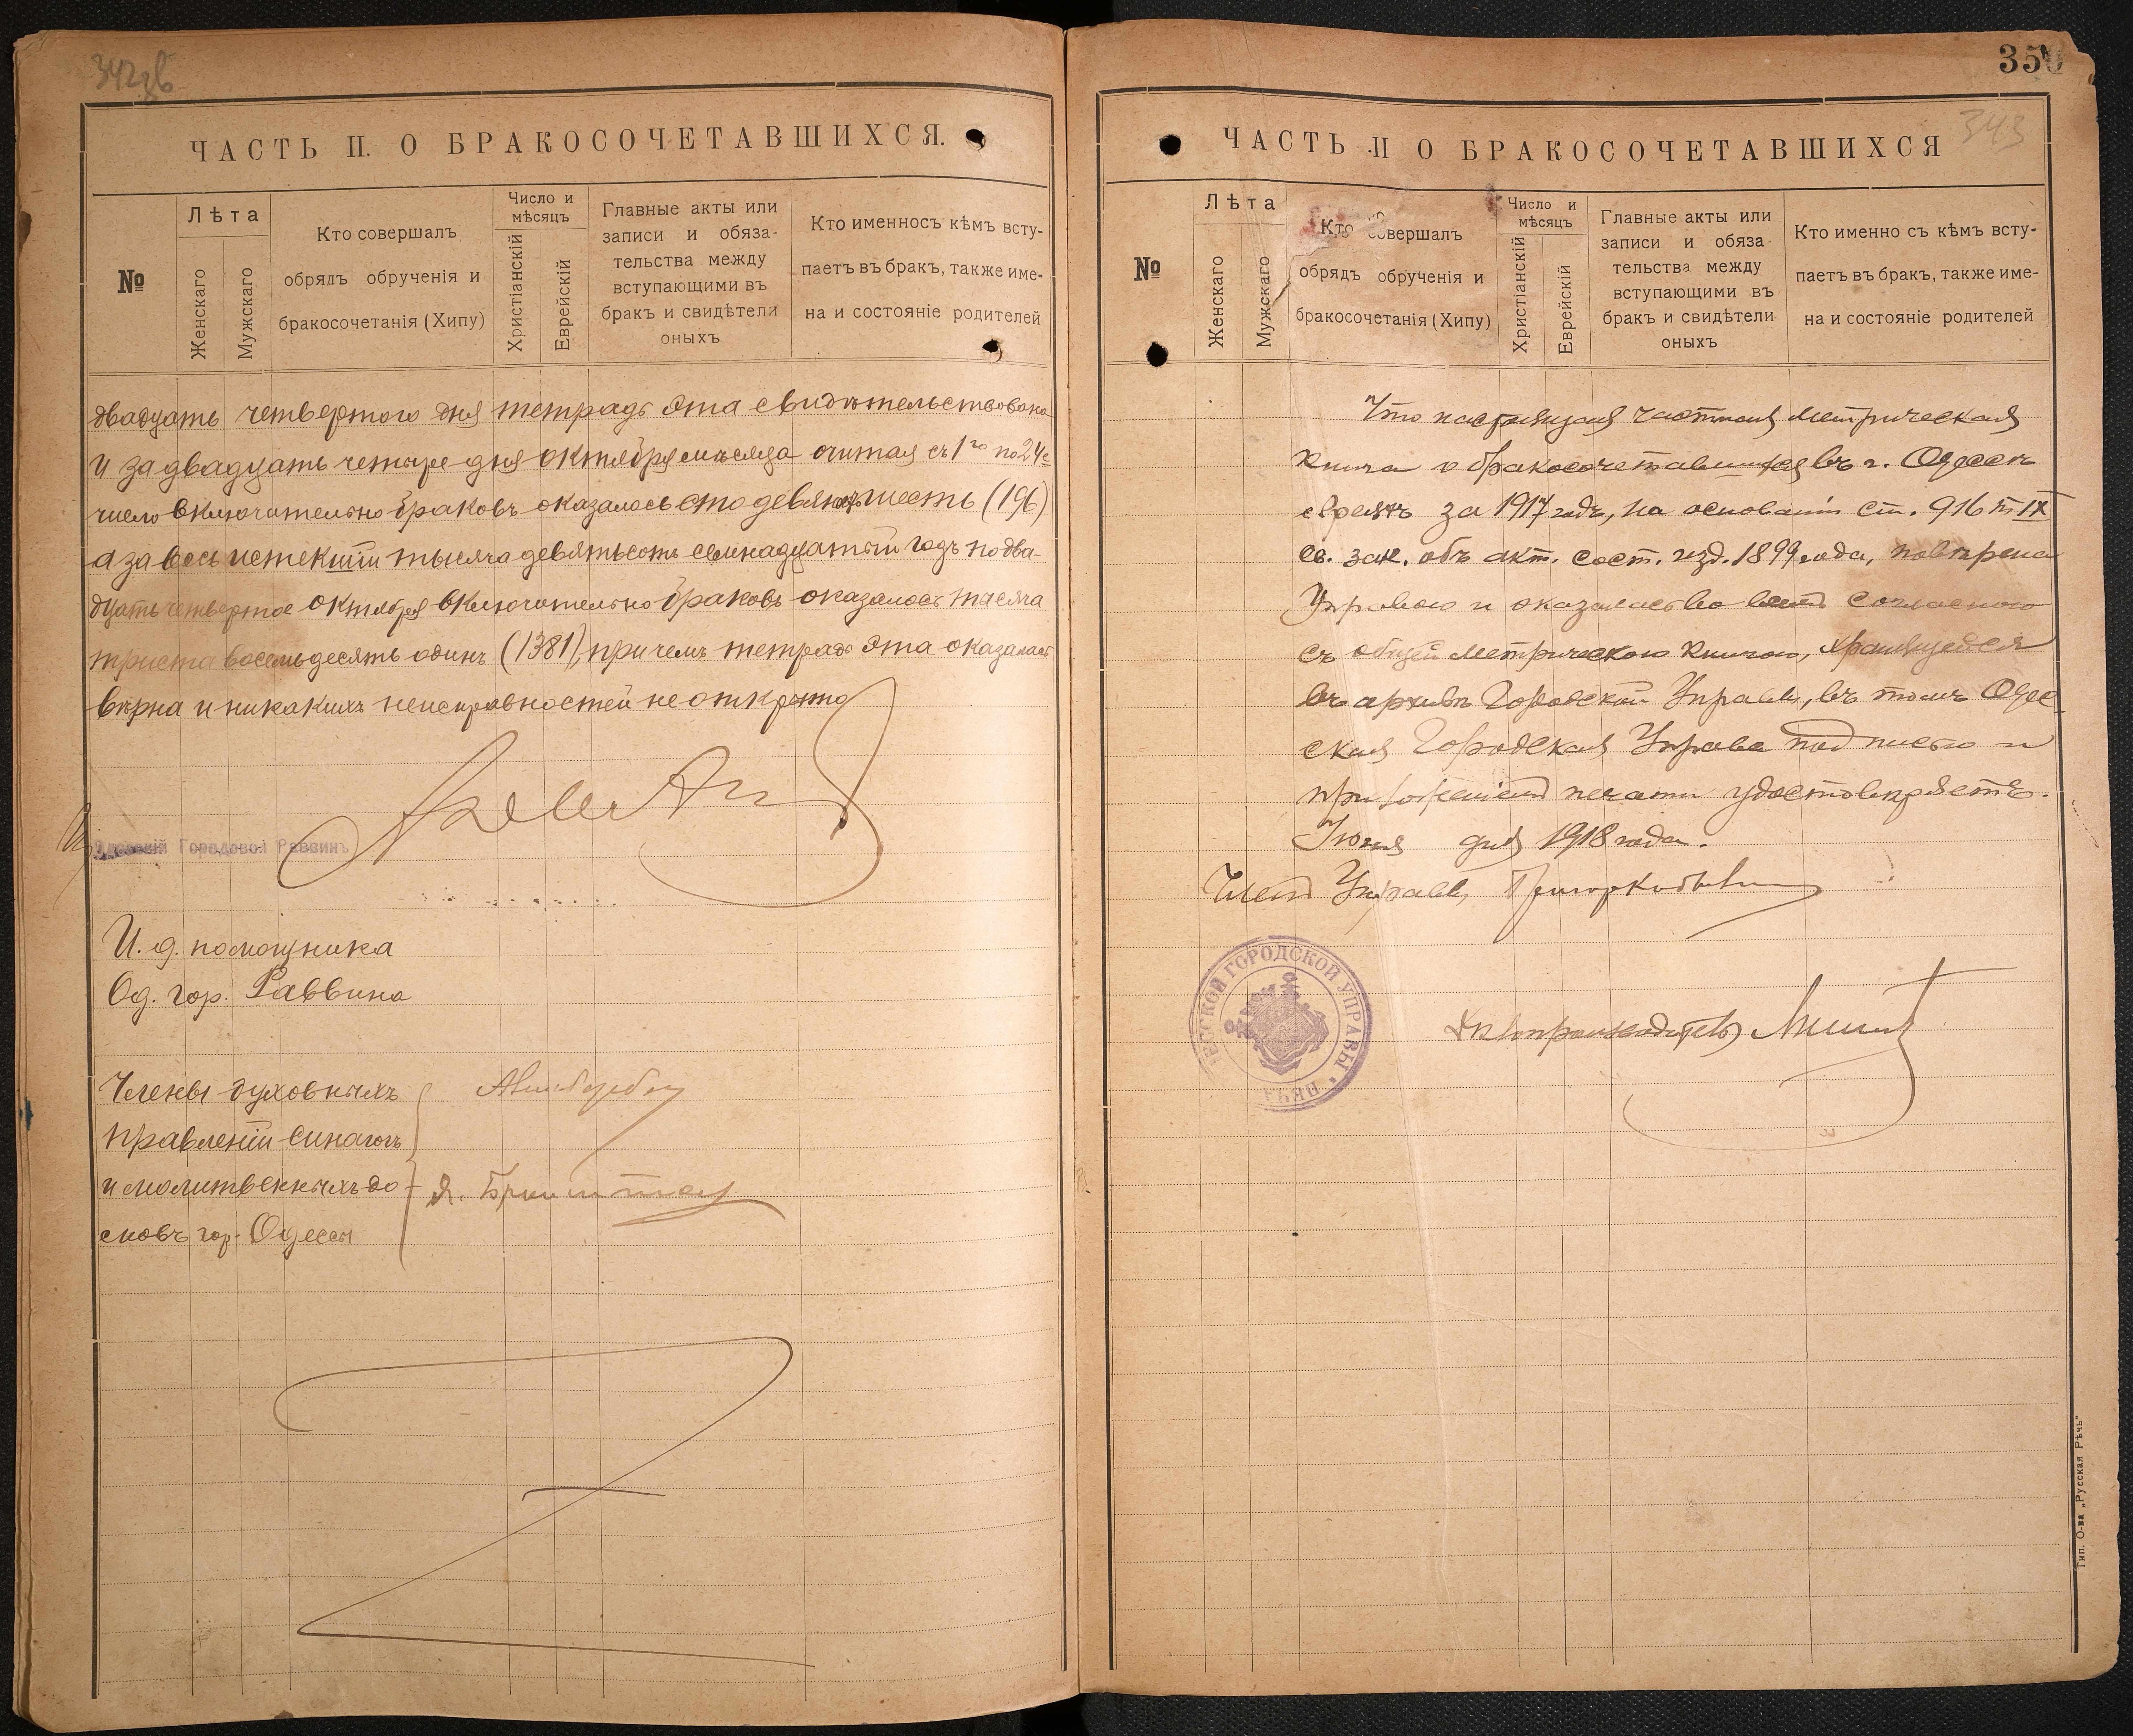 342об
ЧАСТЬ II. О БРАКОСОЧЕТАВШИХСЯ.
№
Лѣта
Женскаго
Мужскаго
Кто совершалъ
обрядъ обрученія и
бракосочетанія (Хипу)
Число и
мѣсяцъ
Христіанскій
Еврейскій
Главные акты или
записи и обяза-
тельства между
вступающими въ
бракъ и свидѣтели
оныхъ
Кто именносъ кѣмъ всту-
паетъ въ бракъ, также име-
на и состояніе родителей
двадцать четвертого дня тетрадь эта свидѣтельствована
и за двадцать четыре дня октября мѣсяца считая съ 1го по 24е
число включительно браковъ оказалось сто девяносто шесть (196)
а за весь истекшій тысяча девятьсотъ семнадцатый годъ по два-
дцать четвертое октября включительно браковъ оказалось тысяча
триста восемьдесятъ одинъ (1381), при чемъ тетрадь эта оказалась
вѣрна и никакихъ неисправностей не открыто
Одесскій Городовой Раввинъ
И. д. помощника
Од. гор. Раввина
Члены духовныхъ
правленій синагогъ
и молитвенныхъ до-
мовъ гор. Одессы
350
343
ЧАСТЬ II О БРАКОСОЧЕТАВШИХСЯ
№
Лѣта
Женскаго
Мужскаго
Кто совершалъ
обрядъ обрученія и
бракосочетанія (Хипу)
Число и
мѣсяцъ
Христіанскій
Еврейскій
Главные акты или
записи и обяза
тельства между
вступающими въ
бракъ и свидѣтели
оныхъ
Кто именно съ кѣмъ всту-
паетъ въ бракъ, также име-
на и состояніе родителей
Что настоящая частная метрическая
книга о бракосочетавшихся въ г. Одессѣ
евреяхъ за 1917 годъ, на основаніи ст. 916 т IX
св. зак. объ акт. сост. изд. 1899 года, повѣрена
Управою и оказалась во всемъ согласною
съ общей метрическою книгою, хранящейся
въ архивѣ Городской Управы, въ томъ Одес-
ская Городская Управа подписью и
приложеніемъ печати удостовѣряетъ.
Іюня дня 1918 года.
Членъ Управы,
Дѣлопроизводитель
ОДЕССКОЙ ГОРОДСКОЙ УПРАВЫ * ПЕЧАТЬ
Тип. О-ва „Русская Рѣчь"